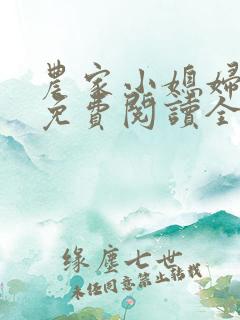 農家小媳婦
免費閱讀全
緣塵七世
未經同意禁止轉載